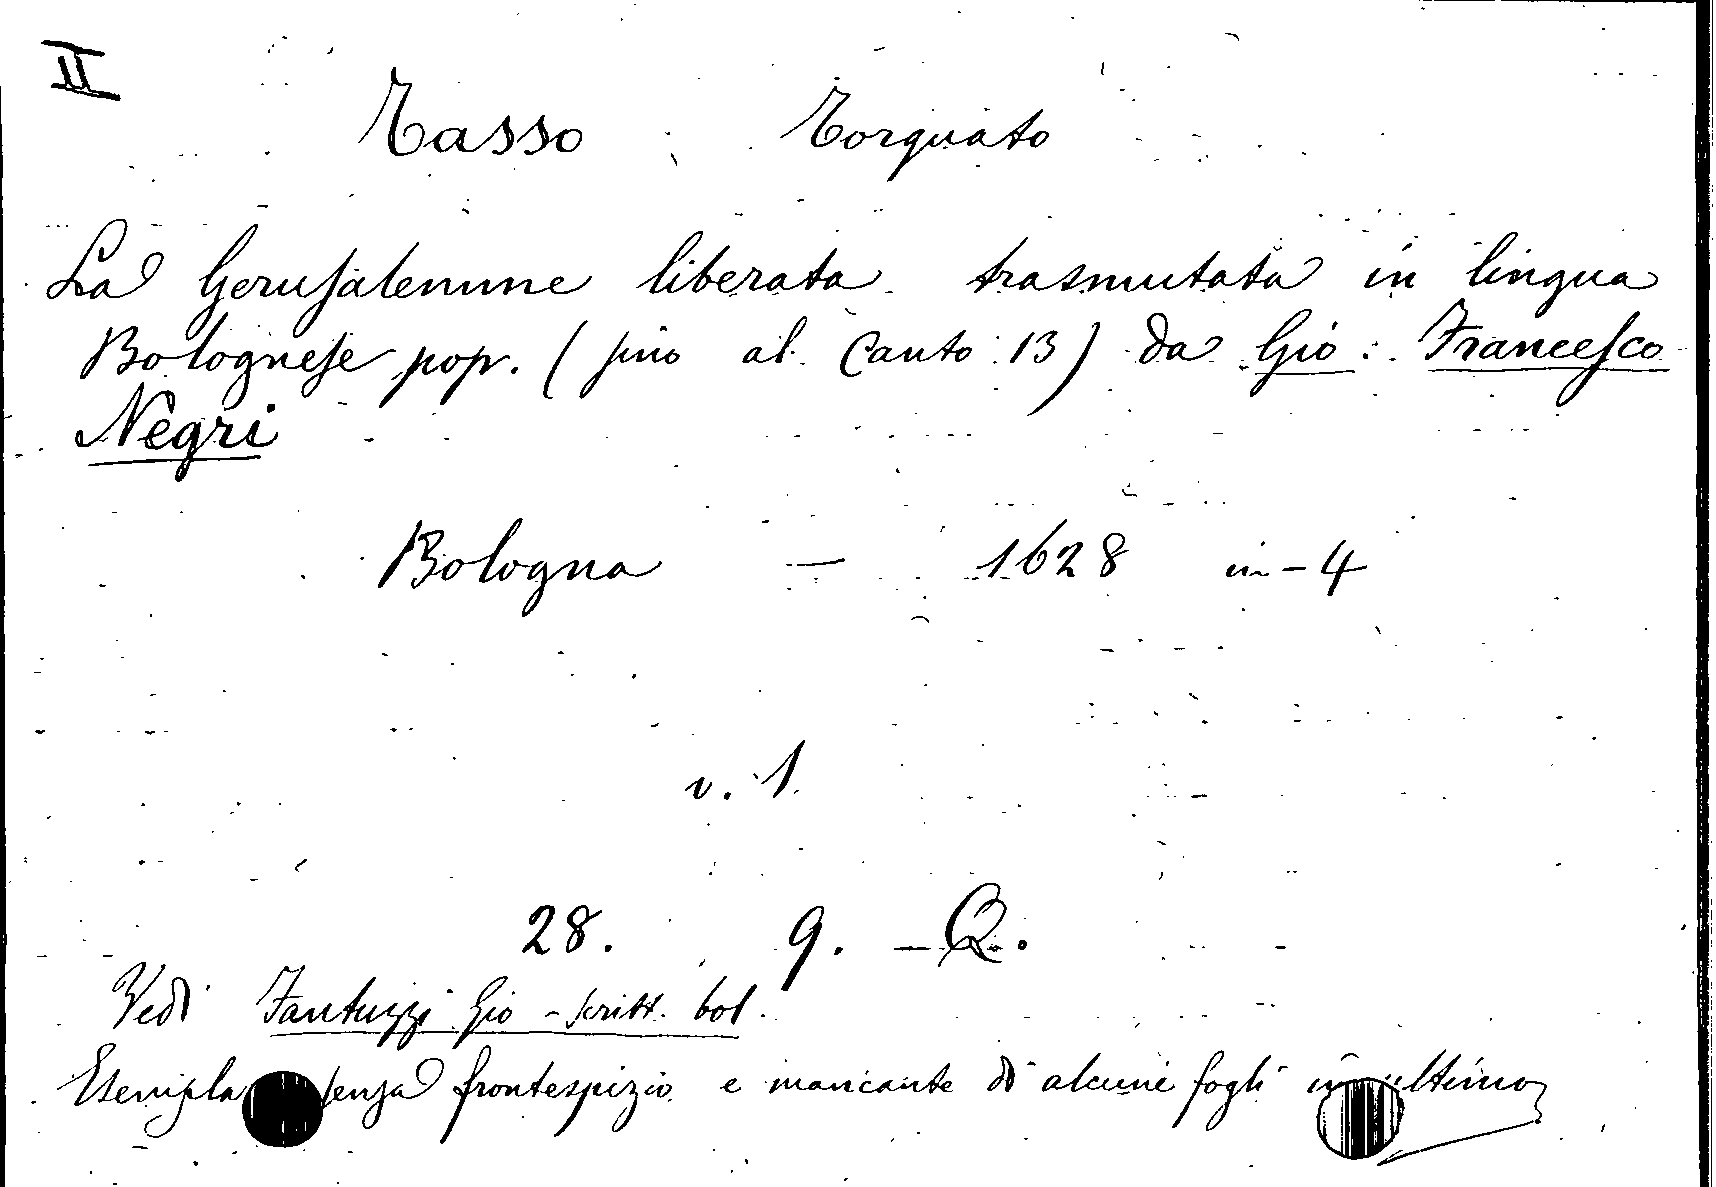 II
Tasso Torquato
La Gerusalemme liberata trasmutata in lingua
Bolognese pop. (sino al Canto 13) da Gio: Francesco
Negri
Bologna — 1628 in-4
v. 1.
28. 9. - Q.
Vedi Fantuzzi Gio - scritt. bol.
senza frontespizio e mancante di alcuni fogli in ultimo